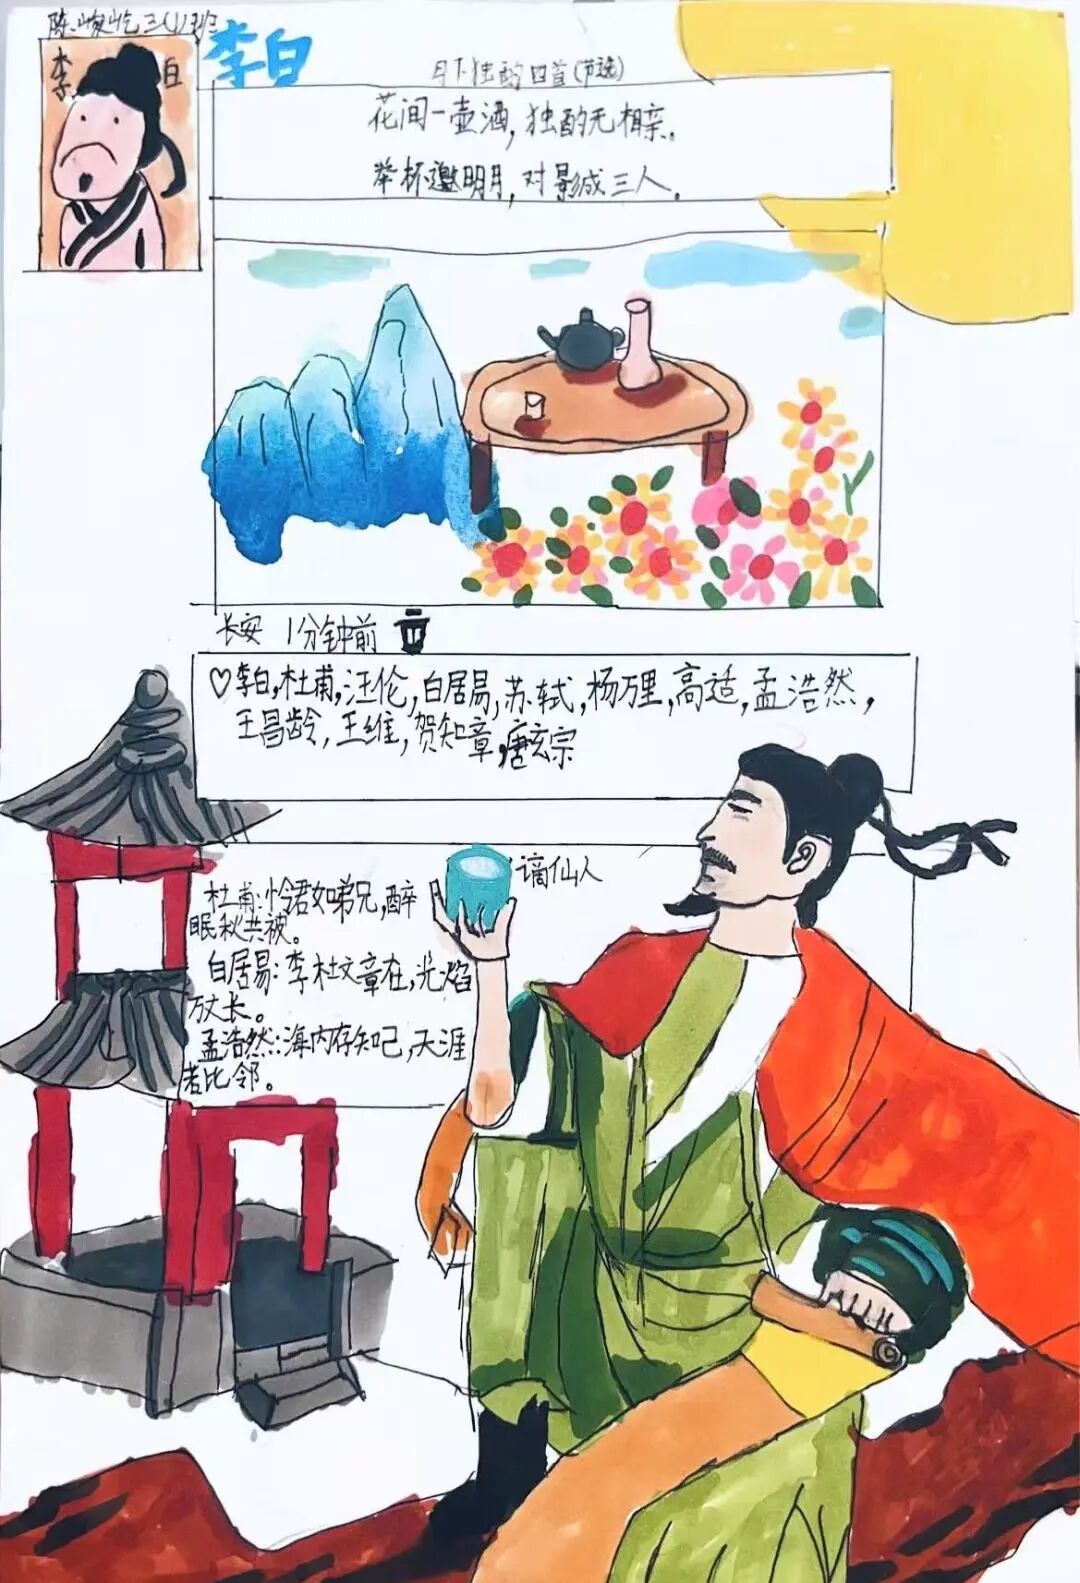 陈峻屹三(1)班
李白
李白
月下独酌四首(节选)
花间一壶酒,独酌无相亲。
举杯邀明月,对影成三人。
长安 1分钟前
♡李白,杜甫,汪伦,白居易,苏轼,杨万里,高适,孟浩然,
王昌龄,王维,贺知章,唐玄宗
谪仙人
杜甫:怜君如弟兄,醉
眠秋共被。
白居易:李杜文章在,光焰
万丈长。
孟浩然:海内存知己,天涯
若比邻。